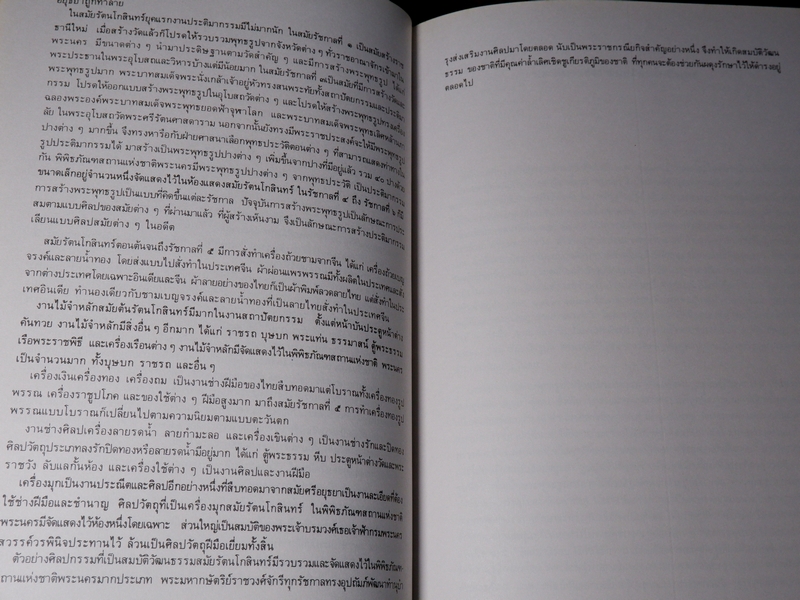 อยุธยาถูกทำลาย
ในสมัยรัตนโกสินทร์ยุคแรกงานประติมากรรมมีไม่มากนัก ในสมัยรัชกาลที่ ๑ เป็นสมัยสร้างราช
ธานีใหม่ เมื่อสร้างวัดแล้วก็โปรดให้รวบรวมพุทธรูปจากจังหวัดต่าง ๆ ทั่วราชอาณาจักรเข้ามาใน
พระนคร มีขนาดต่าง ๆ นำมาประดิษฐานตามวัดสำคัญ ๆ และมีการสร้างพระพุทธรูป ได้แก่
พระประธานในพระอุโบสถและวิหารบ้างแต่มีน้อยมาก ในสมัยรัชกาลที่
พระพุทธรูปมาก พระบาทสมเด็จพระนั่งเกล้าเจ้าอยู่หัวทรงสนพระทัยทั้งสถาปัตยกรรมและประติมา
กรรม โปรดให้ออกแบบสร้างพระพุทธรูปในอุโบสถวัดต่าง ๆ และโปรดให้สร้างพระพุทธรูปทรงเครื่อง
ฉลองพระองค์พระบาทสมเด็จพระพุทธยอดฟ้าจุฬาโลก และพระบาทสมเด็จพระพุทธเลิศหล้านภา
ลัย ในพระอุโบสถวัดพระศรีรัตนศาสดาราม นอกจากนั้นยังทรงมีพระราชประสงค์จะให้มีพระพุทธรูป
ปางต่าง ๆ มากขึ้น จึงทรงหารือกับฝ่ายศาสนาเลือกพุทธประวัติตอนต่าง ๆ ที่สามารถแสดงท่าทางใน
รูปประติมากรรมได้ มาสร้างเป็นพระพุทธรูปปางต่าง ๆ เพิ่มขึ้นจากปางที่มีอยู่แล้ว รวม ๔๐ ปางด้วย
กัน พิพิธภัณฑสถานแห่งชาติพระนครมีพระพุทธรูปปางต่าง ๆ จากพุทธประวัติ เป็นประติมากรรม
ขนาดเล็กอยู่จำนวนหนึ่งจัดแสดงไว้ในห้องแสดงสมัยรัตนโกสินทร์ ในรัชกาลที่ ๔ ถึง รัชกาลที่ ๖ ก็มี
การสร้างพระพุทธรูปเป็นแบบที่คิดขึ้นแต่ละรัชกาล ปัจจุบันการสร้างพระพุทธรูปเป็นลักษณะการประ
สมตามแบบศิลปของสมัยต่าง ๆ ที่ผ่านมาแล้ว ที่ผู้สร้างเห็นงาม จึงเป็นลักษณะการสร้างประติมากรรม
เลียนแบบศิลปสมัยต่าง ๆ ในอดีต
สมัยรัตนโกสินทร์ตอนต้นจนถึงรัชกาลที่ ๕ มีการสั่งทำเครื่องถ้วยชามจากจีน ได้แก่ เครื่องถ้วยเบญ
จรงค์และลายน้ำทอง โดยส่งแบบไปสั่งทำในประเทศจีน ผ้าผ่อนแพรพรรณมีทั้งผลิตในประเทศและสั่ง
จากต่างประเทศโดยเฉพาะอินเดียและจีน ผ้าลายอย่างของไทยก็เป็นผ้าพิมพ์ลวดลายไทย แต่สั่งทำในประ
เทศอินเดีย ทำนองเดียวกับชามเบญจรงค์และลายน้ำทองที่เป็นลายไทยสั่งทำในประเทศจีน
งานไม้จำหลักสมัยต้นรัตนโกสินทร์มีมากในงานสถาปัตยกรรม ตั้งแต่หน้าบันประตูหน้าต่าง
คันทวย งานไม้จำหลักมีสิ่งอื่น ๆ อีกมาก ได้แก่ ราชรถ บุษบก พระแท่น ธรรมาสน์ ตู้พระธรรม
เรือพระราชพิธี และเครื่องเรือนต่าง ๆ งานไม้จำหลักมีจัดแสดงไว้ในพิพิธภัณฑสถานแห่งชาติ พระนคร
เป็นจำนวนมาก ทั้งบุษบก ราชรถ และอื่น ๆ
เครื่องเงินเครื่องทอง เครื่องถม เป็นงานช่างฝีมือของไทยสืบทอดมาแต่โบราณทั้งเครื่องทองรูป
พรรณ เครื่องราชูปโภค และของใช้ต่าง ๆ ฝีมือสูงมาก มาถึงสมัยรัชกาลที่ ๕ การทำเครื่องทองรูป
พรรณแบบโบราณก็เปลี่ยนไปตามความนิยมตามแบบตะวันตก
งานช่างศิลปเครื่องลายรดน้ำ ลายกำมะลอ และเครื่องเขินต่าง ๆ เป็นงานช่างรักและปิดทอง
ศิลปวัตถุประเภทลงรักปิดทองหรือลายรดน้ำมีอยู่มาก ได้แก่ ตู้พระธรรม หีบ ประตูหน้าต่างวัดและพระ
ราชวัง ลับแลกั้นห้อง และเครื่องใช้ต่าง ๆ เป็นงานศิลปและงานฝีมือ
เครื่องมุกเป็นงานประณีตและศิลปอีกอย่างหนึ่งที่สืบทอดมาจากสมัยศรีอยุธยาเป็นงานละเอียดที่ต้อง
ใช้ช่างฝีมือและชำนาญ ศิลปวัตถุที่เป็นเครื่องมุกสมัยรัตนโกสินทร์ ในพิพิธภัณฑสถานแห่งชาติ
พระนครมีจัดแสดงไว้ห้องหนึ่งโดยเฉพาะ ส่วนใหญ่เป็นสมบัติของพระเจ้าบรมวงศ์เธอเจ้าฟ้ากรมพระนคร
สวรรค์วรพินิจประทานไว้ ล้วนเป็นศิลปวัตถุฝีมือเยี่ยมทั้งสิ้น
ตัวอย่างศิลปกรรมที่เป็นสมบัติวัฒนธรรมสมัยรัตนโกสินทร์มีรวบรวมและจัดแสดงไว้ในพิพิธภัณฑ
สถานแห่งชาติพระนครมากประเภท พระมหากษัตริย์ราชวงศ์จักรีทุกรัชกาลทรงอุปถัมภ์พัฒนาทำนุบำ
รุงส่งเสริมงานศิลปมาโดยตลอด นับเป็นพระราชกรณียกิจสำคัญอย่างหนึ่ง จึงทำให้เกิดสมบัติวัฒน
ธรรม ของชาติที่มีคุณค่าล้ำเลิศเชิดชูเกียรติภูมิของชาติ ที่ทุกคนจะต้องช่วยกันผดุงรักษาไว้ให้ดำรงอยู่
ตลอดไป